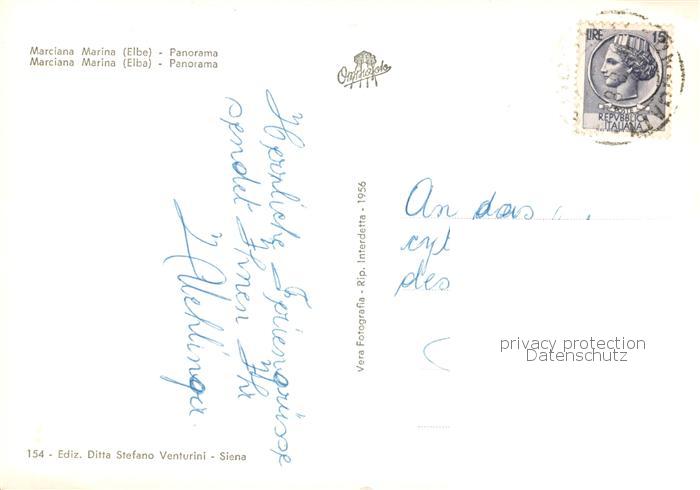 Marciana Marina (Elbe) - Panorama
Marciana Marina (Elba) - Panorama
LIRE 15
POSTE
REPVBBLICA
ITALIANA
Herrliche Feriengrüsse
sendet Ihnen Ihr
Vera Fotografia - Rip. Interdetta - 1956
An das
des
privacy protection
Datenschutz
154 - Ediz. Ditta Stefano Venturini - Siena